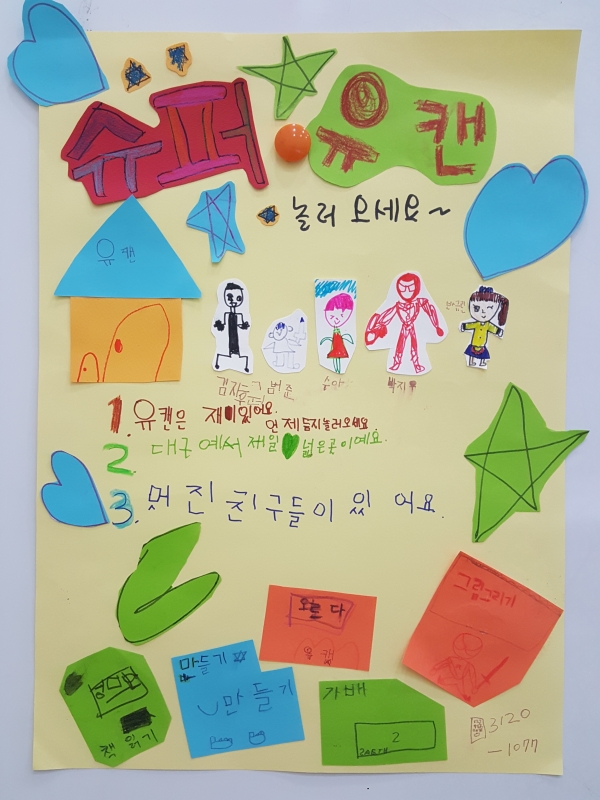 슈퍼
유캔
놀러오세요~
유캔
범준
1. 유캔은 재미있어요. 언제든지놀러오세요
2. 대구에서 제일 넓은곳이예요.
3. 멋진친구들이 있어요.
오르다
유캔
그림그리기
만들기
만들기
책읽기
가베
2
3120
-1077